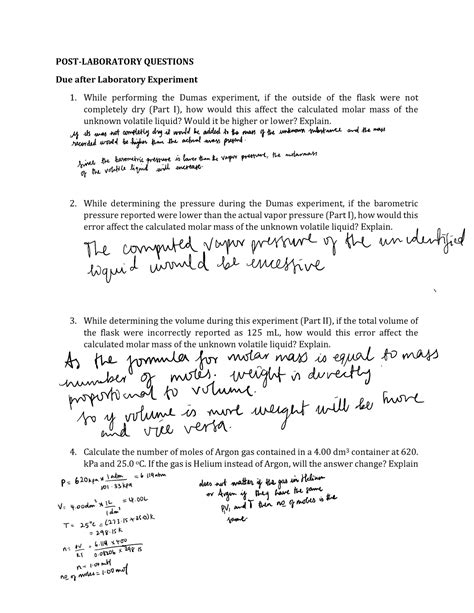 POST-LABORATORY QUESTIONS
Due after Laboratory Experiment
1. While performing the Dumas experiment, if the outside of the flask were not
completely dry (Part I), how would this affect the calculated molar mass of the
unknown volatile liquid? Would it be higher or lower? Explain.
if its was not completly dry it would be added to the mass of the unknown substance and the mass
recorded would be higher than the actual mass present.
Since the barometric pressure is lower than the vapor pressure, the molarmass
of the volatile liquid will increase.
2. While determining the pressure during the Dumas experiment, if the barometric
pressure reported were lower than the actual vapor pressure (Part I), how would this
error affect the calculated molar mass of the unknown volatile liquid? Explain.
The computed vapor pressure of the unidentified
liquid would be excessive
3. While determining the volume during this experiment (Part II), if the total volume of
the flask were incorrectly reported as 125 mL, how would this error affect the
calculated molar mass of the unknown volatile liquid? Explain.
As the formula for molar mass is equal to mass
number of moles. weight is directly
proportional to volume.
so if volume is more weight will be more
and vice versa.
4. Calculate the number of moles of Argon gas contained in a 4.00 dm³ container at 620.
kPa and 25.0 ºC. If the gas is Helium instead of Argon, will the answer change? Explain
P = 620kpa x 1 atm = 6.119 atm
101.33 kpa
V = 4.00dm³ x 1L = 4.00L
1dm³
T = 25°C = (273.15+25.0)k
= 298.15k
n = PV = 6.119 x 4.00
RT 0.08206 x 298.15
n = 1.00 mol
no of moles = 1.00 mol
does not matter if the gas in Helium
or Argon if they have the same
PV, and T then no of moles is the
same.